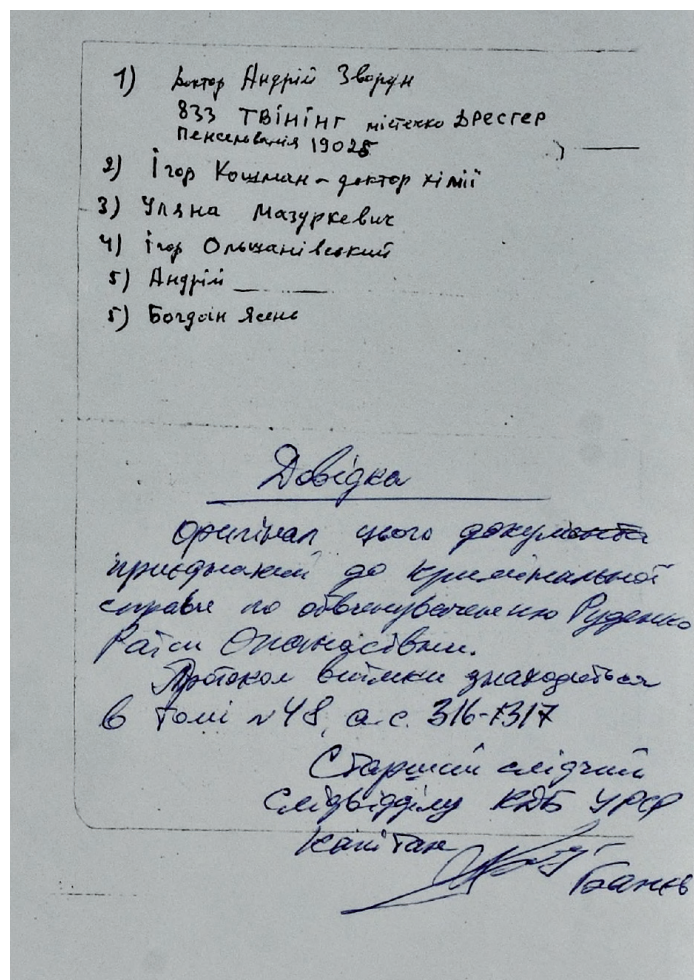 1) доктор Андрій Зворун
833 ТВІНІНГ містечко ДРЕСГЕР
Пенсельванія 19025
2) Ігор Кошман – доктор хімії
3) Уляна Мазуркевич
4) Ігор Ольшанівський
5) Андрій
5) Богдан Ясень
Довідка
Оригінал цього документа
приєднаний до кримінальної
справи по обвинуваченню Руденко
Раїси Опанасівни.
Протокол виїмки знаходиться
в томі №48, а.с. 316-317
Старший слідчий
Слідвідділу КДБ УРСР
Капітан